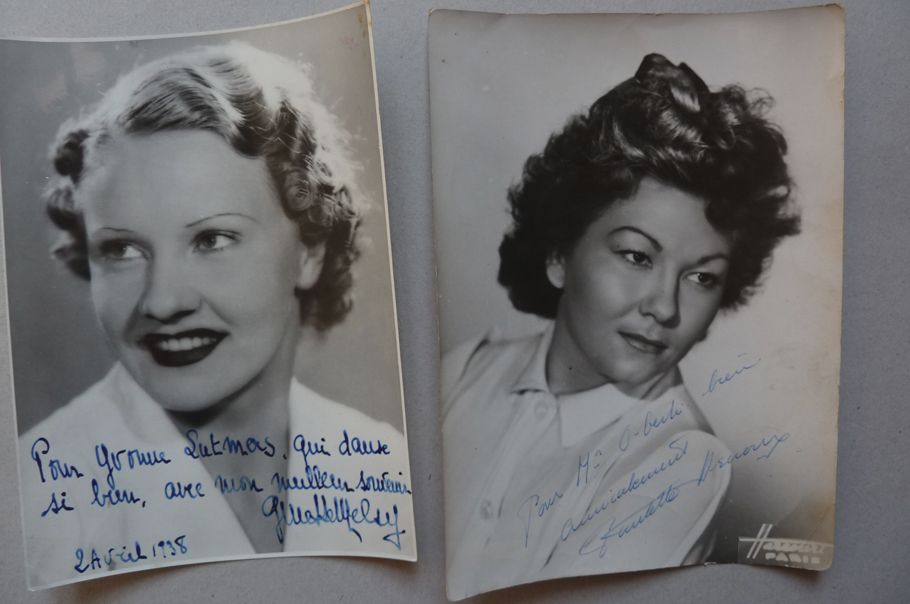 Pour Yvonne Lutmas, qui danse
si bien, avec mon meilleur souvenir
2 Avril 1938
Pour Mr
bien
amicalement
Paulette
PARIS